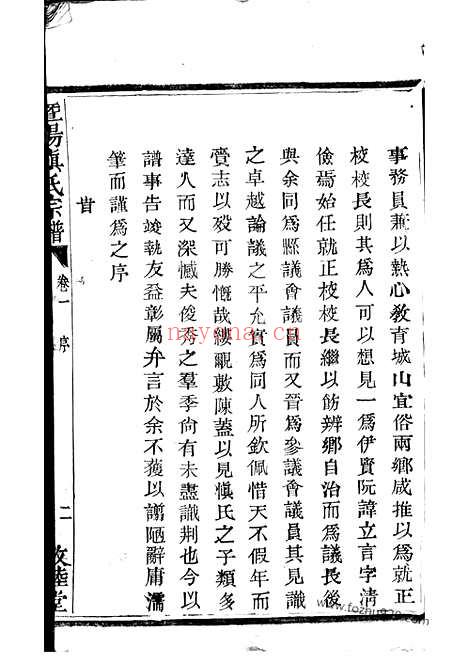 事務員兼以熱心敎育城山宜俗兩鄉咸推以爲就正
校校長則其爲人可以想見一爲伊賢阮諱立言字淸
儉焉始任就正校校長繼以飭辨鄉自治而爲議長後
與余同爲縣議會議員而又晉爲參議會議員其見識
之卓越論議之平允實爲同人所欽佩惜天不假年而
賫志以歿可勝慨哉覶覼敷陳蓋以見愼氏之子類多
達人而又深憾夫俊秀之羣季尙有未盡識荆也今以
譜事告竣執友益彰屬弁言於余不獲以謭陋辭庸濡
筆而謹爲之序
旹
暨陽愼氏宗譜 卷一 序 二 敦睦堂
nayona.cn
www.fozhu920.com